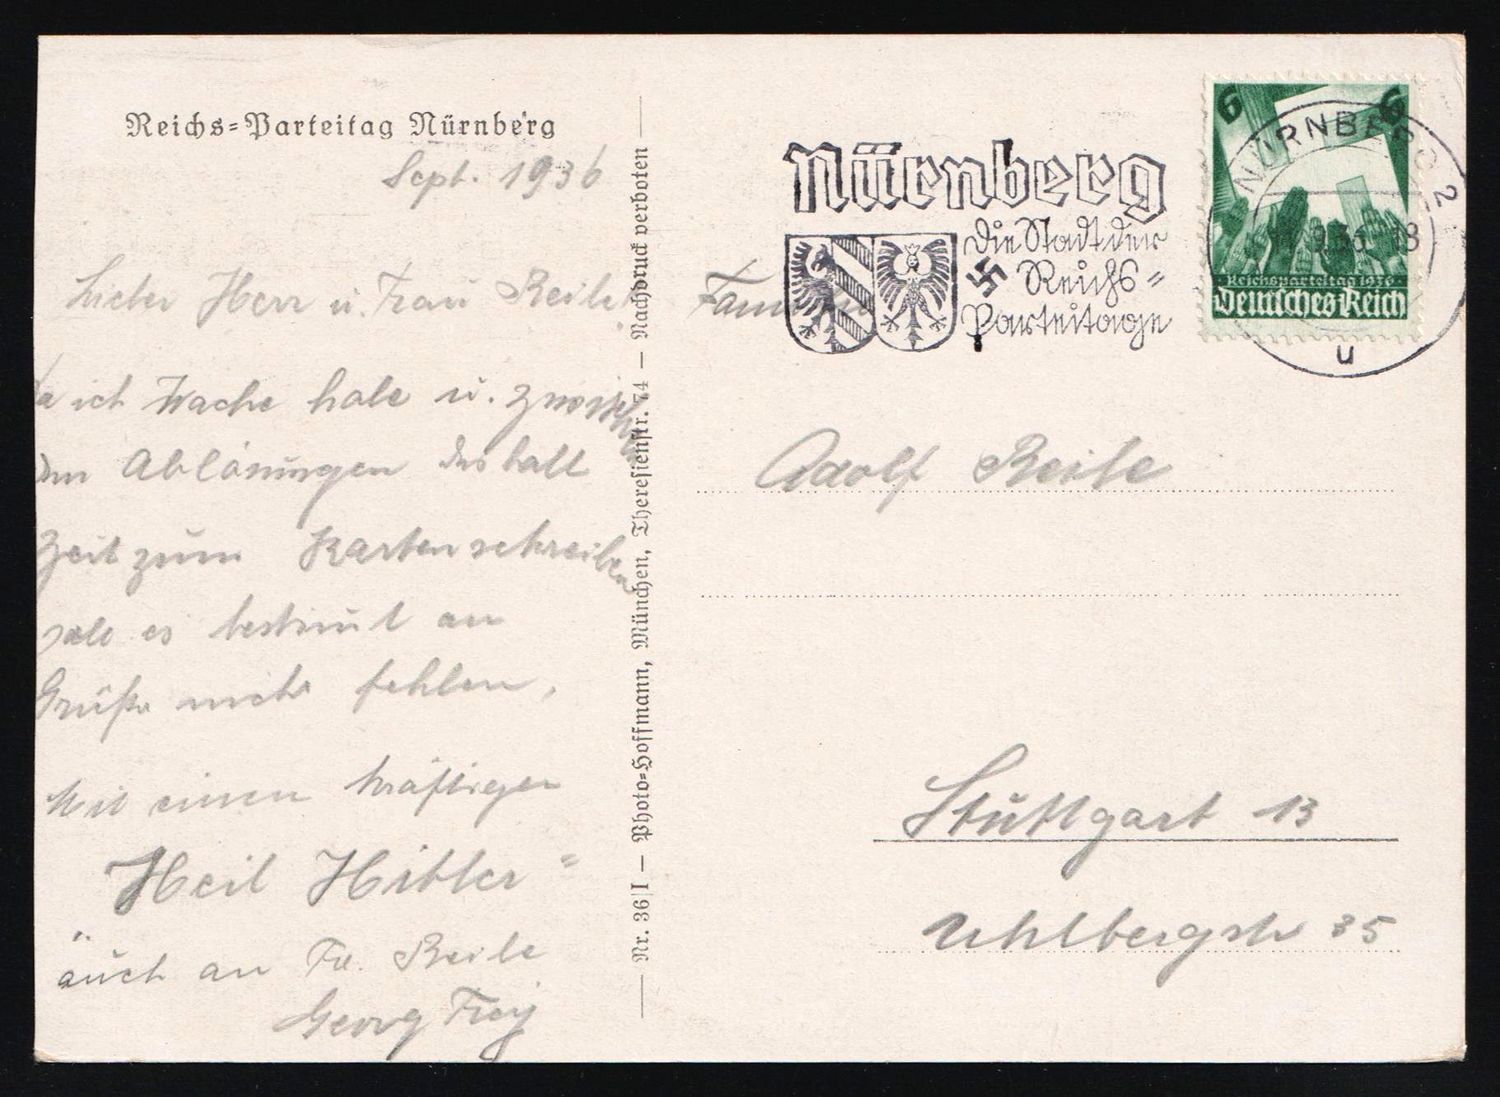 Reichs=Parteitag Nürnberg
Sept. 1936
Lieber Herr u. Frau Beile
Da ich Wache habe u. zwischen
den Ablösungen deshalb
Zeit zum Kartenschreiben
solls es bestimmt an
Grüße nicht fehlen,
Mit einen kräftigen
Heil Hitler"
auch an Fr. Beile
Georg Frey
Nr. 36/I — Photo=Hoffmann, München, Theresienstr. 74 — Nachdruck verboten
Nürnberg
Die Stadt der
Reichs=
Parteitage
NÜRNBERG 2
9.36.-18
u
6 6
Reichsparteitag 1936
Deutsches Reich
Familie
Adolf Beile
Stuttgart 13
Uhlbergstr 35